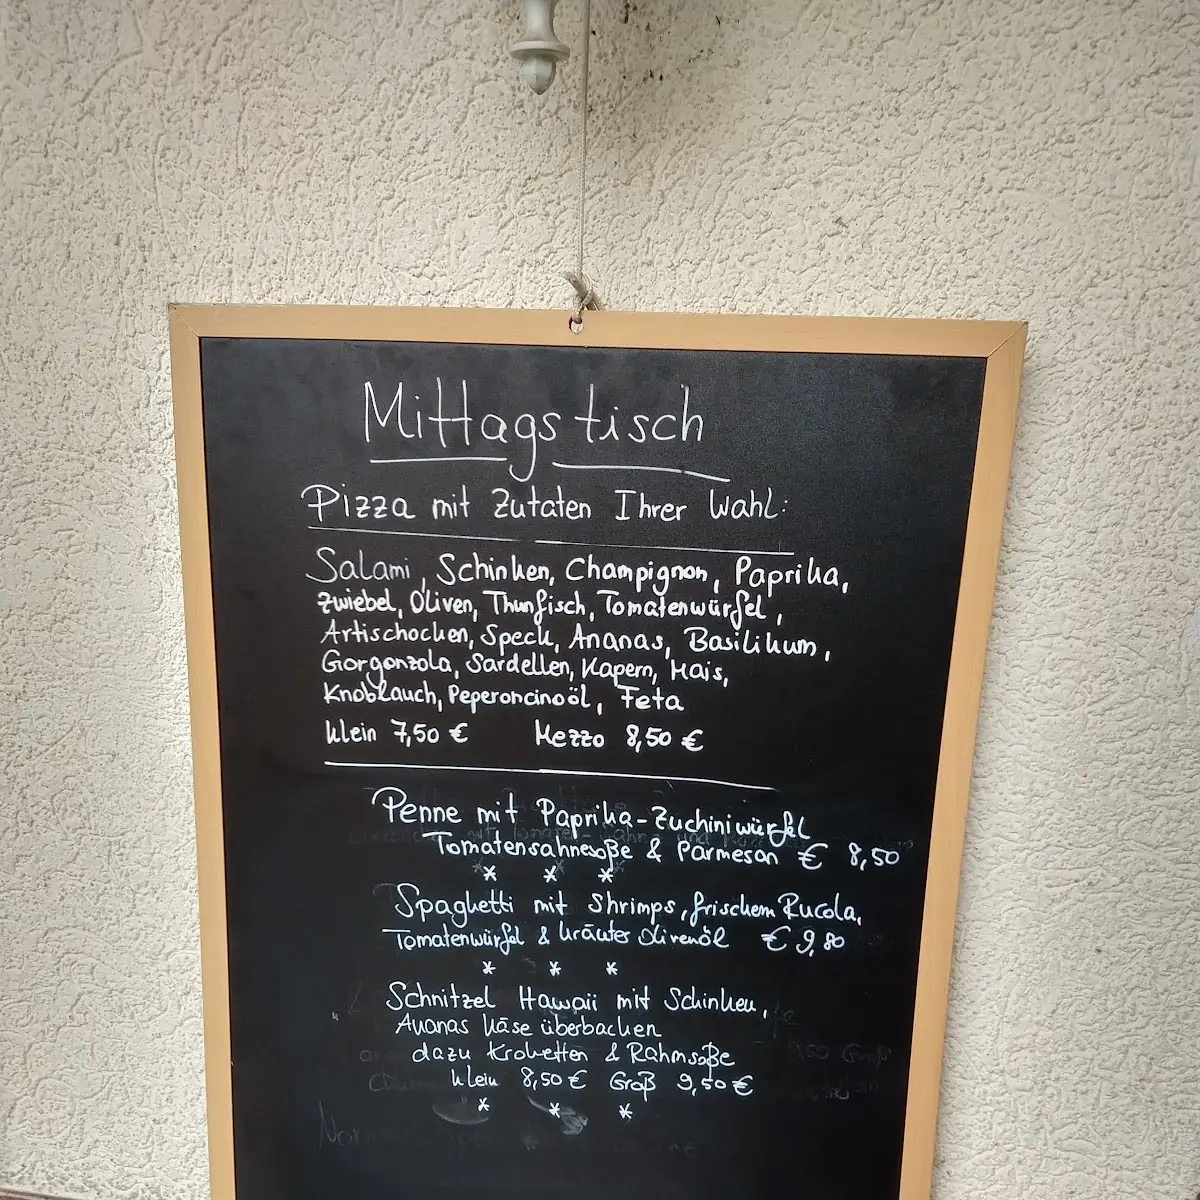 Mittagstisch
Pizza mit Zutaten Ihrer Wahl:
Salami, Schinken, Champignon, Paprika,
Zwiebel, Oliven, Thunfisch, Tomatenwürfel,
Artischocken, Speck, Ananas, Basilikum,
Gorgonzola, Sardellen, Kapern, Mais,
Knoblauch, Peperoncinoöl, Feta
klein 7,50 € Mezzo 8,50 €
Penne mit Paprika-Zuchiniwürfel
Tomatensahnesoße & Parmesan € 8,50
* * *
Spaghetti mit Shrimps, frischem Rucola,
Tomatenwürfel & kräuter Olivenöl € 9,80
* * *
Schnitzel Hawaii mit Schinken,
Ananas Käse überbacken
dazu Kroketten & Rahmsoße
klein 8,50 € Groß 9,50 €
* * *